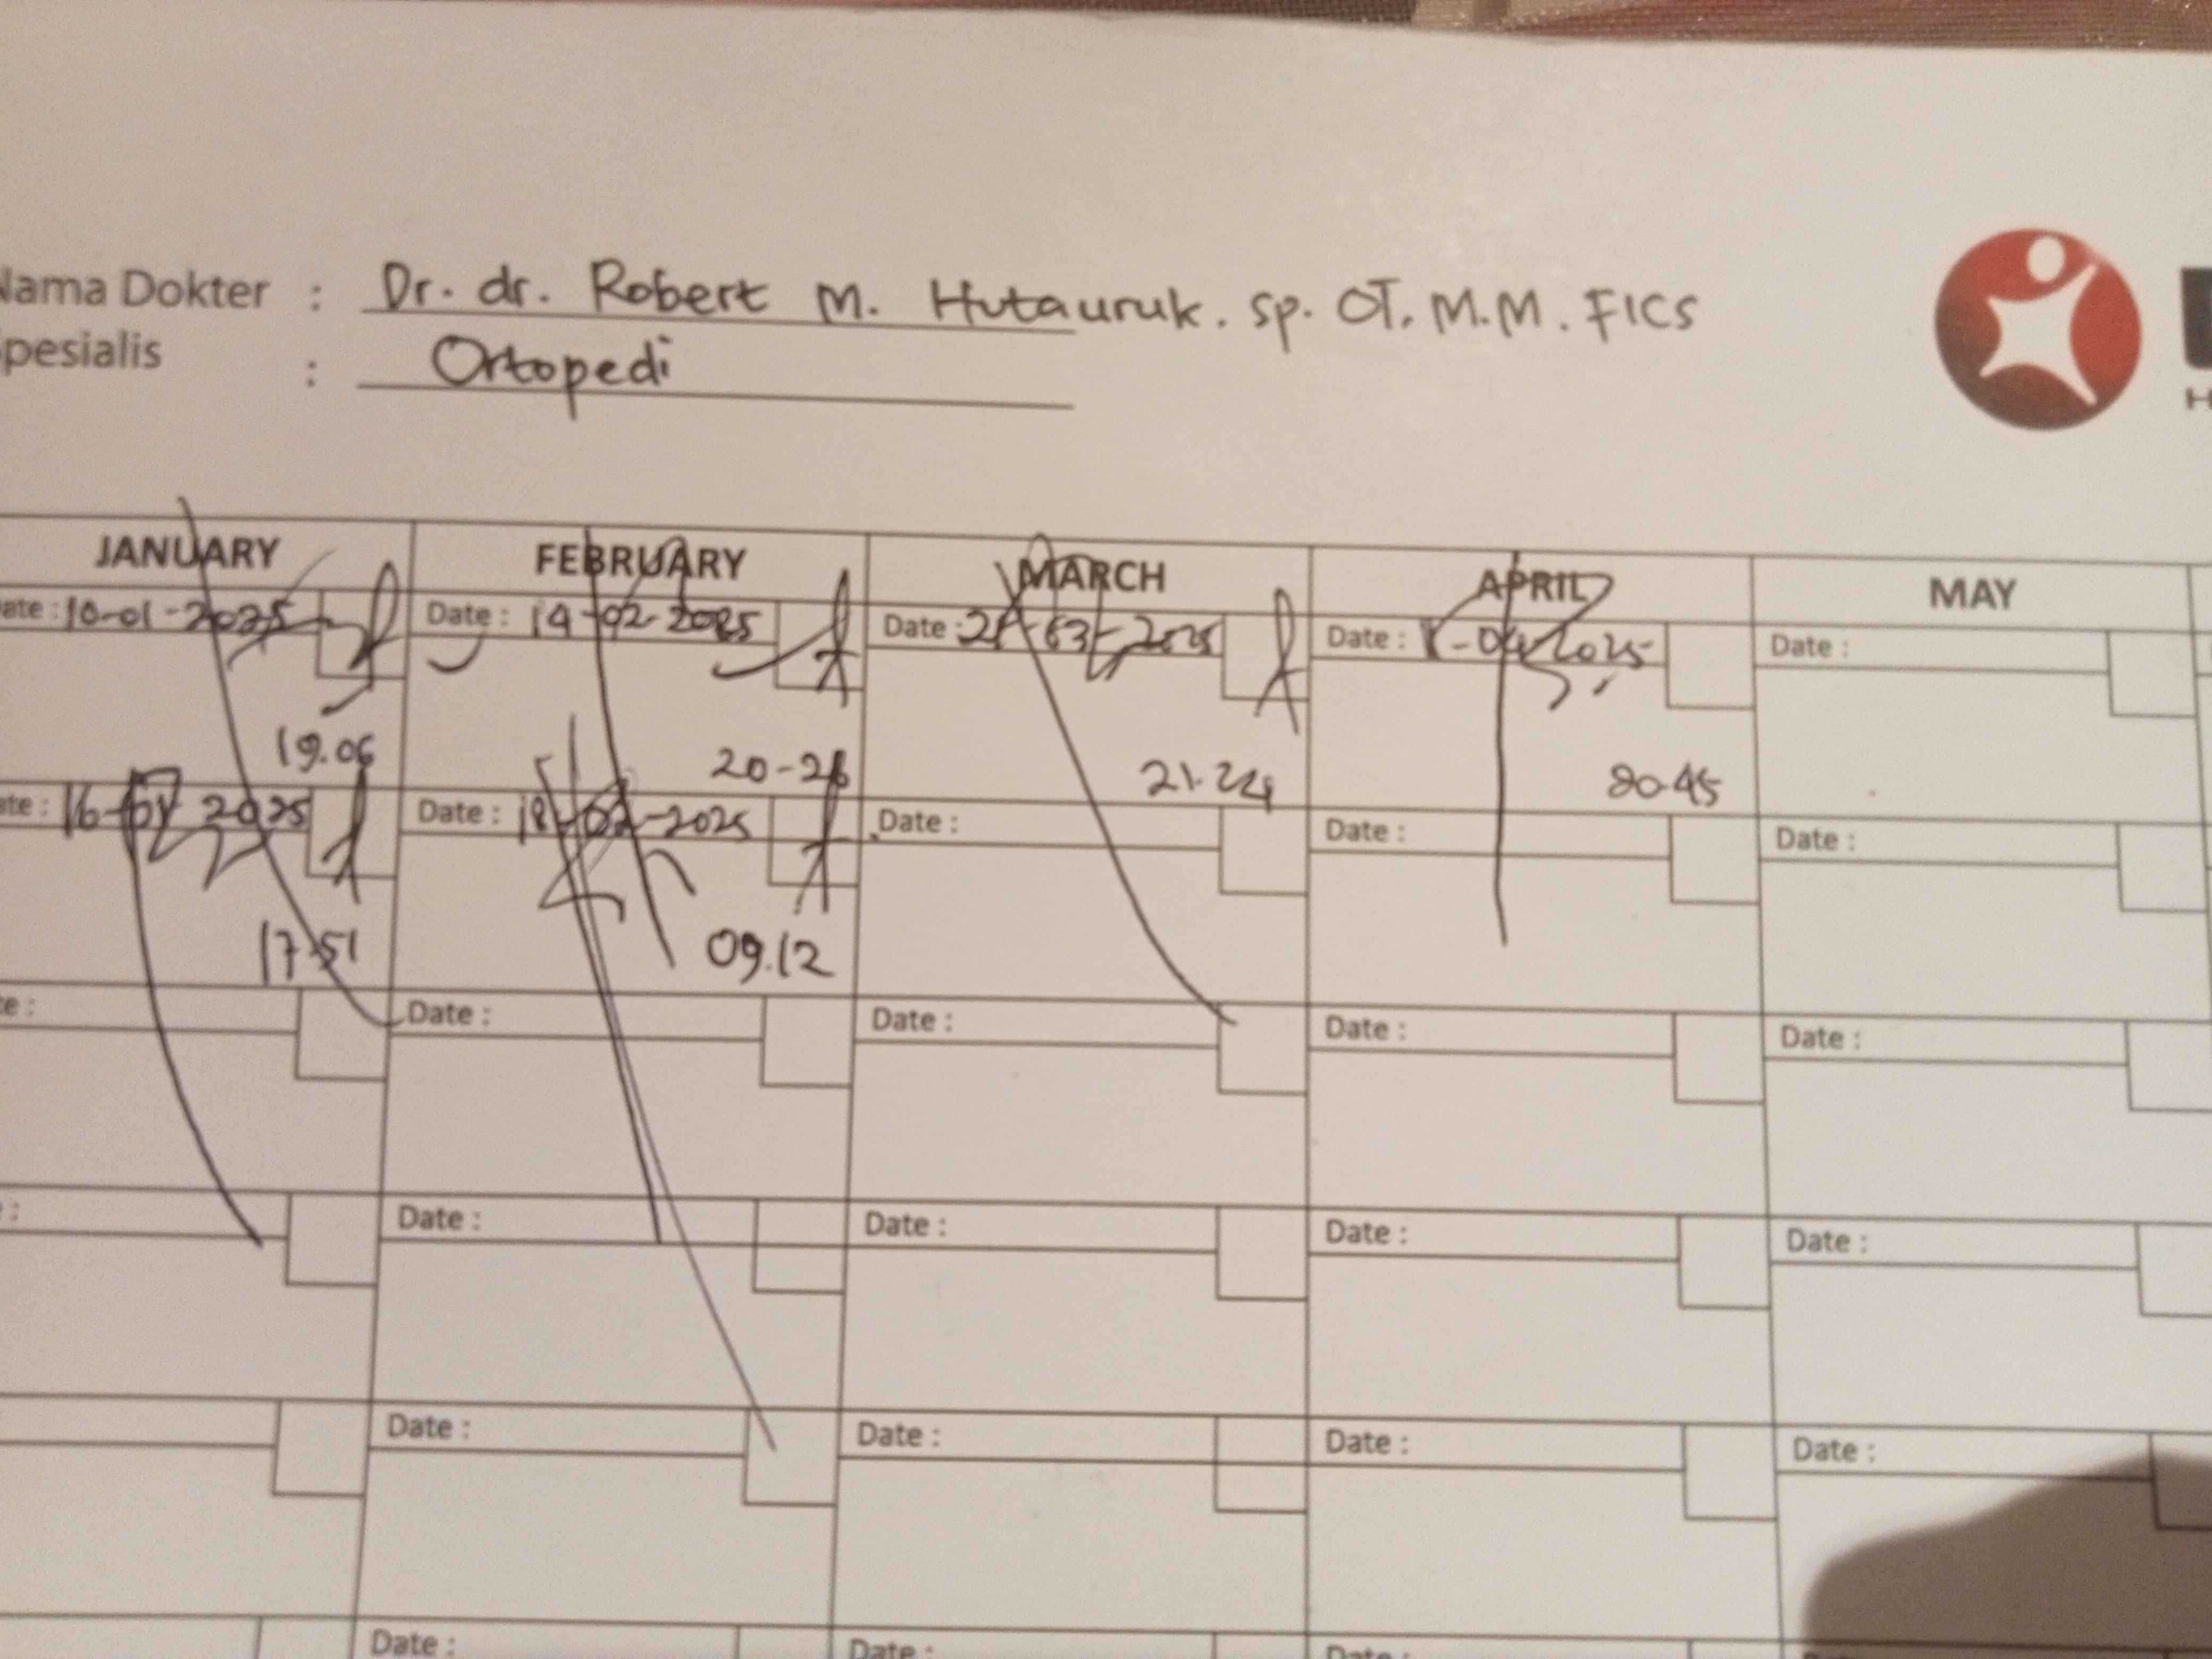 Nama Dokter : Dr. dr. Robert M. Hutauruk. Sp. OT. M.M. FICS
Spesialis : Ortopedi
H
JANUARY FEBRUARY MARCH APRIL MAY
Date : 10-01-2025 Date : 14-02-2025 Date : -03-2025 Date : -04-2025 Date :
19.06 20-26 21.24 20.45
Date : 16-01-2025 Date : 18-02-2025 Date : Date : Date :
17.51 09.12
Date : Date : Date : Date :
Date : Date : Date : Date :
Date : Date : Date : Date :
Date : Date : Date :